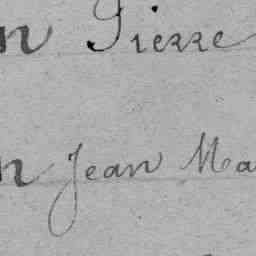 n Pierre
n Jean Ma